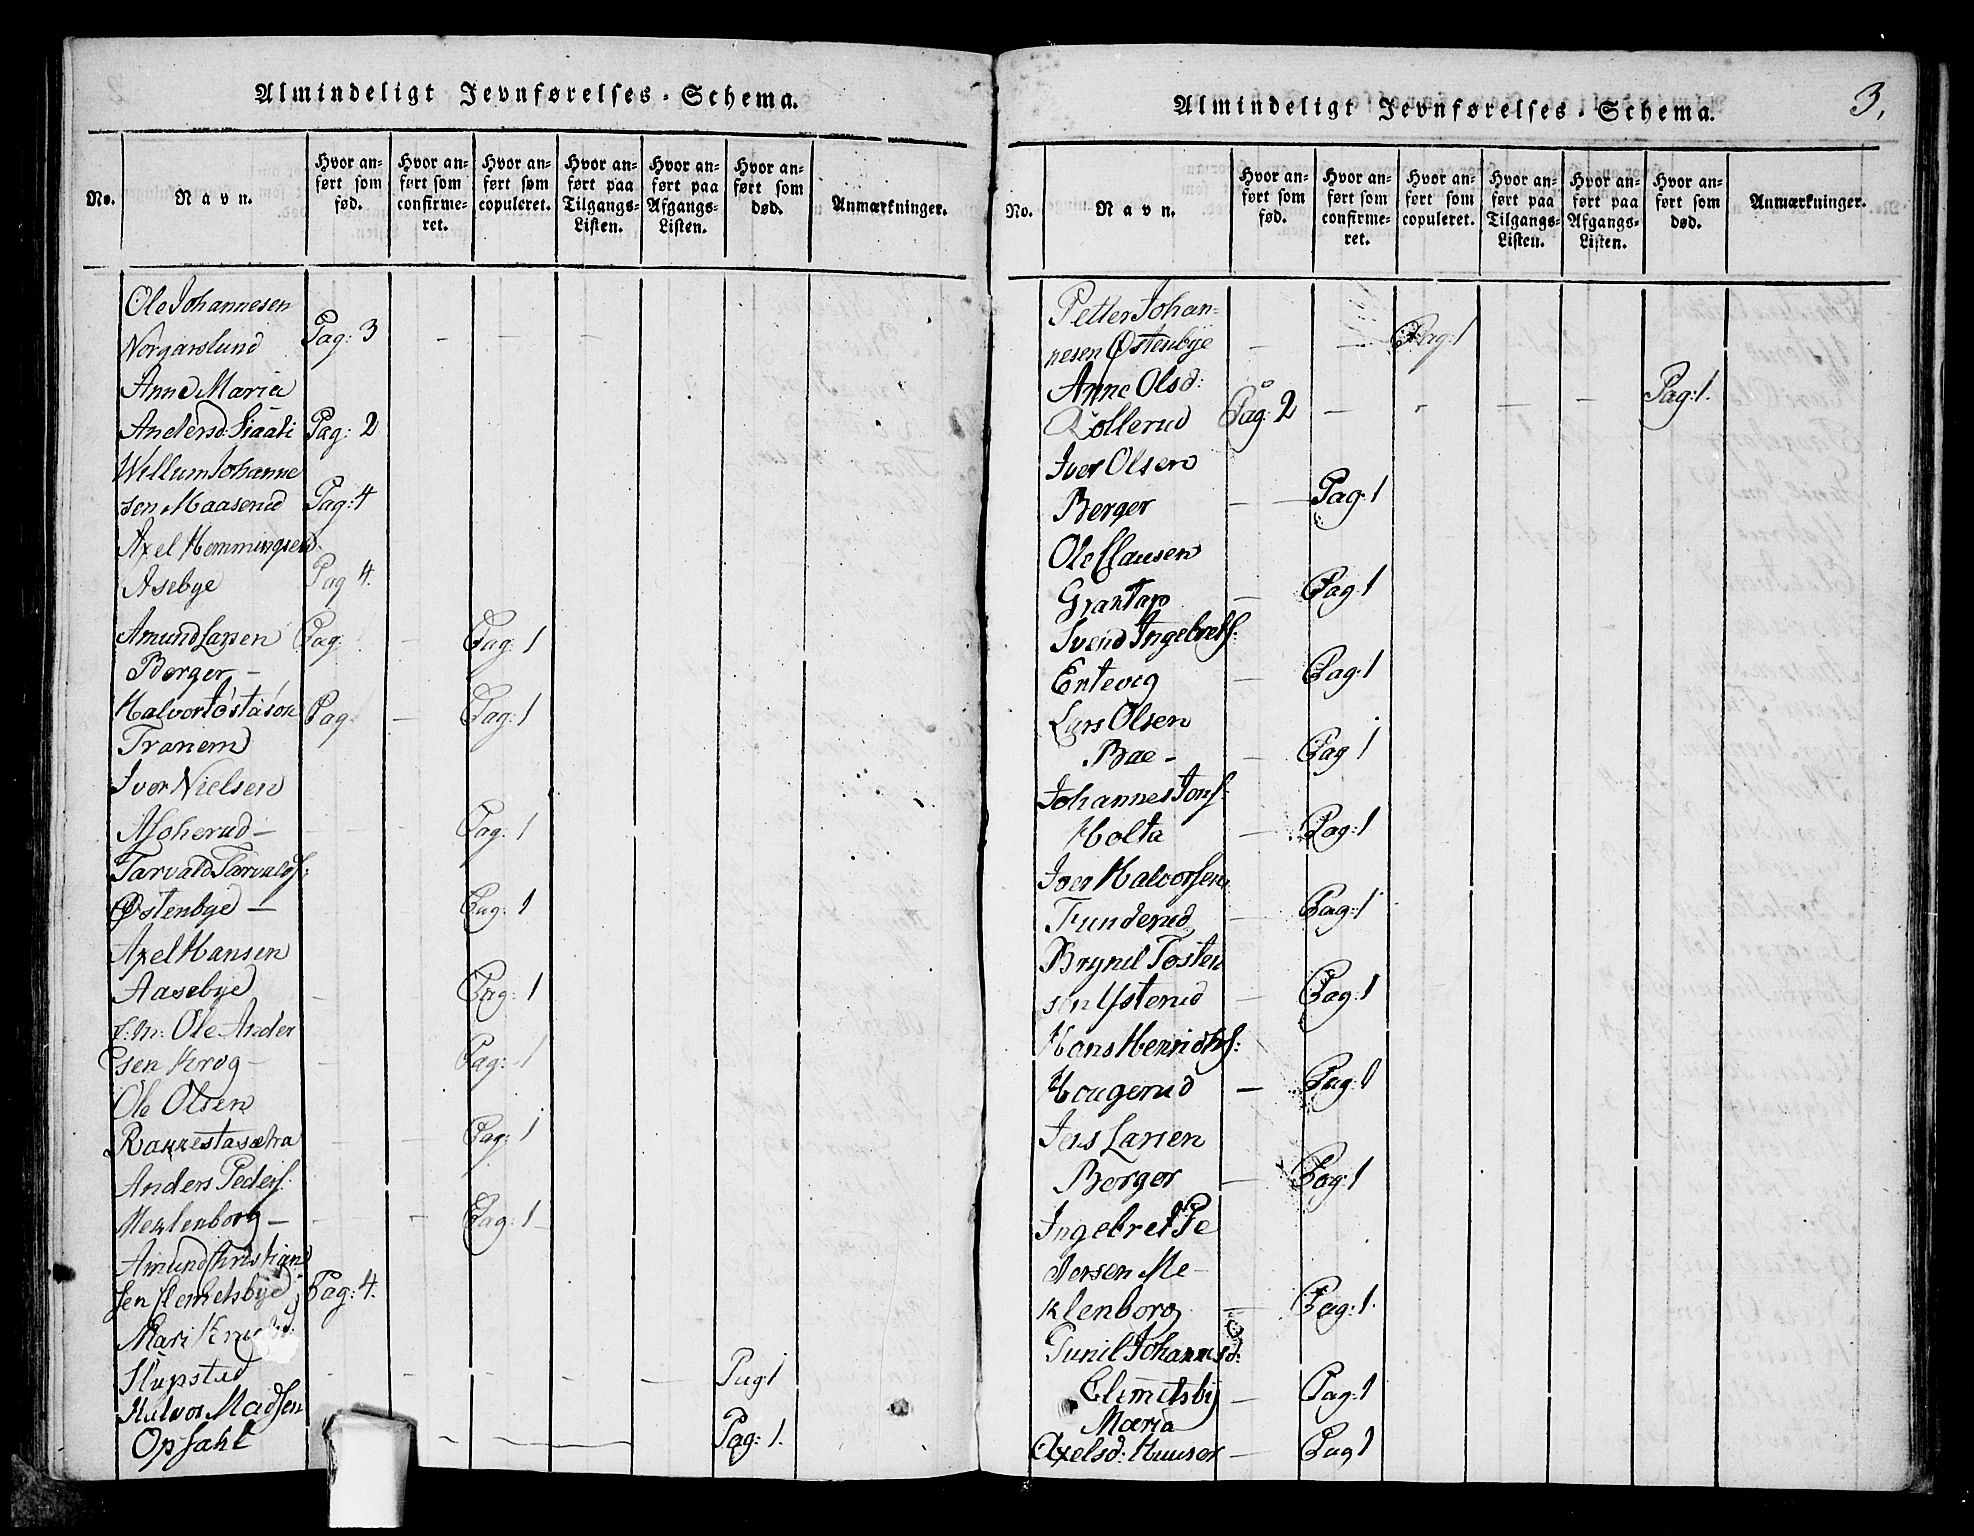 Almindeligt Jevnførelses-Schema.
No.
Navn.
Hvor anført som fød.
Hvor anført som confirmeret.
Hvor anført som copuleret.
Hvor anført paa Tilgangs-Listen.
Hvor anført paa Afgangs-Listen.
Hvor anført som død.
Anmærkninger.
Ole Johannesen
Norgarslund Pag: 3 - - - -
Anne Maria
Andersd: Pag: 2
Willum Johanne
sen Maaserud Pag: 4
Axel Hemmingsen
Asebye Pag 4.
Amund Larsen Pag. - Pag: 1
Berger -
Halvor Tostason Pag. - Pag: 1
Tranem
Iver Nielsen
- - - Pag: 1
Tarvald Tarvalds:
Østenbye - Pag: 1
Axel Hansen
Aasebye - Pag: 1
Ole Ander
sen Krog - - Pag: 1
Ole Olsen
Rakkestasætra - - Pag: 1
Anders Peders:
Meklenborg - - - Pag: 1 -
Amund Christian
sen Clemetsbye Pag: 4.
Mari
- - - - - Pag 1
Halvor Madsen
Opsahl - - Pag: 1.
Almindeligt Jevnførelses-Schema.
3.
No.
Navn.
Hvor anført som fød.
Hvor anført som confirmeret.
Hvor anført som copuleret.
Hvor anført paa Tilgangs-Listen.
Hvor anført paa Afgangs-Listen.
Hvor anført som død.
Anmærkninger.
Petter Johan-
nesen Østenbye - - Pag: 1
Anne Olsd:
Kollerud Pag: 2 - - - - Pag: 1.
Iver Olsen
Berger - - Pag: 1
Ole Clausen
Grantap - Pag: 1
Svend Ingebrets:
Entevig - Pag: 1
Lars Olsen
Bae - - Pag 1
Johannes Jons:
Holta - Pag: 1
Iver Halvorsen
Funderud - Pag: 1
Brynil Tosten
sen Ysterud - Pag: 1
Hans Henrichs:
Hougerud - Pag: 1
Jens Larsen
Berger - Pag: 1
Ingebret Pe
dersen Me-
klenborg - Pag: 1.
Gunil Johannesd:
Clemetsby - Pag: 1
Maria
Axelsd: Huuser - Pag 1